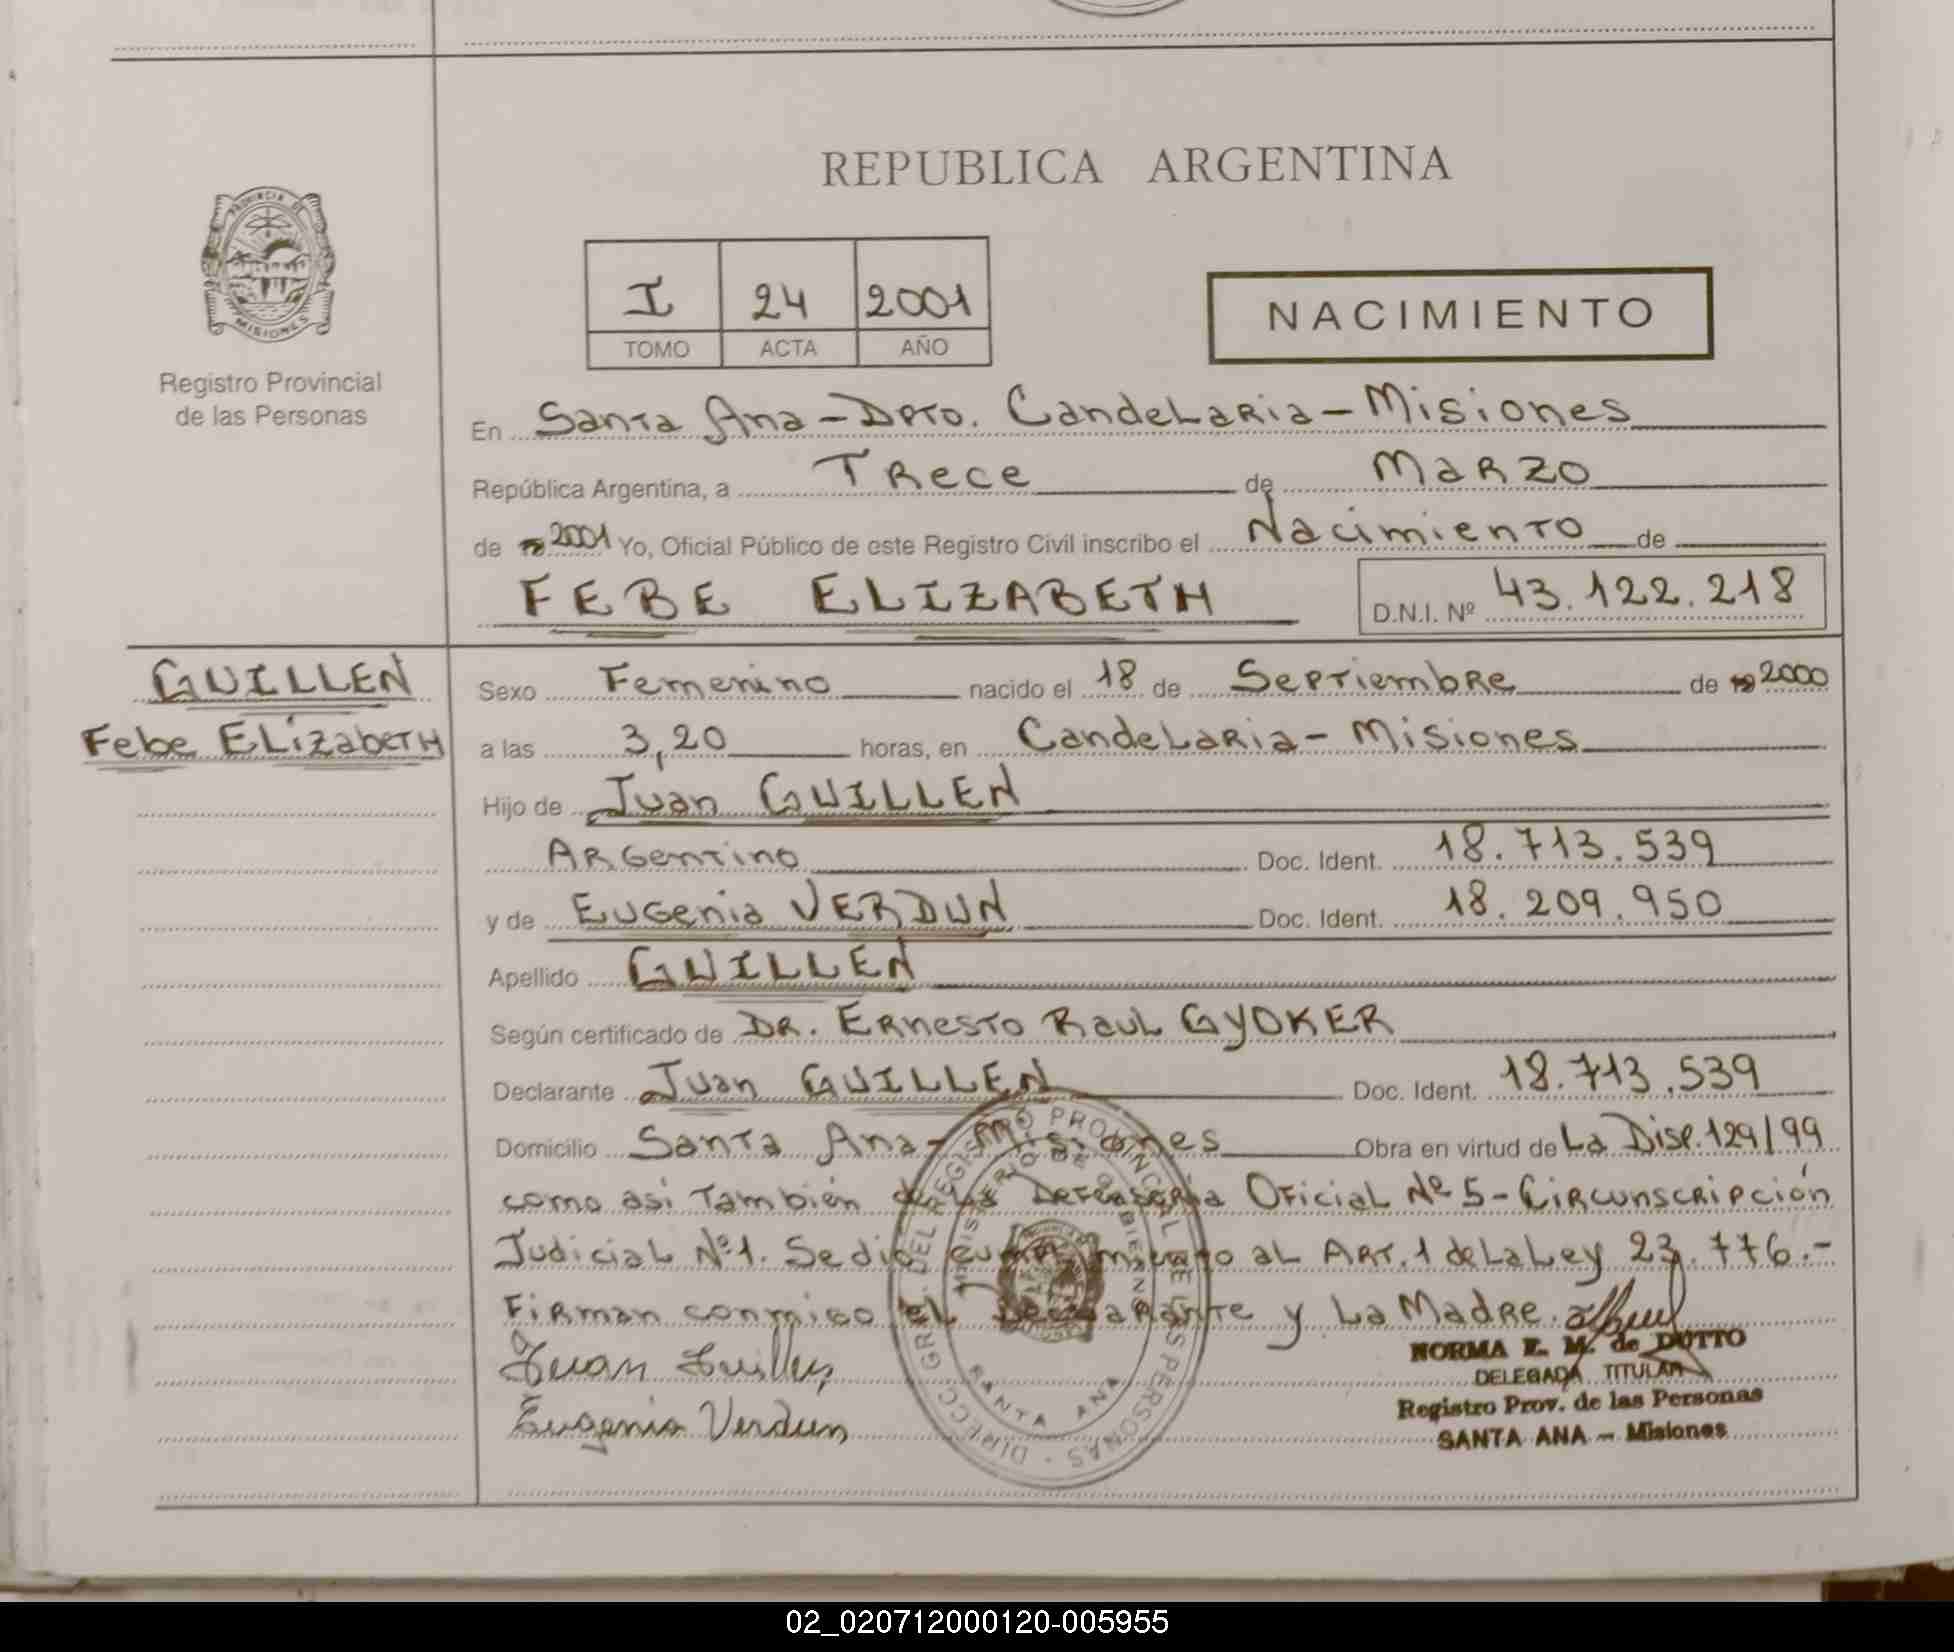 REPUBLICA ARGENTINA
PROVINCIA DE
MISIONES
Registro Provincial
de las Personas
I 24 2001
TOMO ACTA AÑO
NACIMIENTO
En Santa Ana - Dpto. Candelaria - Misiones
República Argentina, a Trece de Marzo
de 2001 Yo, Oficial Público de este Registro Civil inscribo el Nacimiento de
FEBE ELIZABETH D.N.I. Nº 43.122.218
GUILLEN
Febe Elizabeth
Sexo Femenino nacido el 18 de Septiembre de 2000
a las 3,20 horas, en Candelaria - Misiones
Hijo de Juan GUILLEN
Argentino Doc. Ident. 18.713.539
y de Eugenia VERDUN Doc. Ident. 18.209.950
Apellido GUILLEN
Según certificado de DR. Ernesto Raul GYOKER
Declarante Juan GUILLEN Doc. Ident. 18.713.539
Domicilio Santa Ana - Misiones Obra en virtud de La Disp. 129/99
como así También de la Defensoria Oficial Nº 5 - Circunscripción
Judicial Nº 1. Se dio cumplimiento al Art. 1 de La Ley 23.776.-
Firman conmigo el Declarante y La Madre.
Juan Guillen
Eugenia Verdun
DIRECC. GRAL. DEL REGISTRO PROVINCIAL DE LAS PERSONAS
MINISTERIO DE GOBIERNO
SANTA ANA
NORMA E. M. de DOTTO
DELEGADA TITULAR
Registro Prov. de las Personas
SANTA ANA - Misiones
02_020712000120-005955